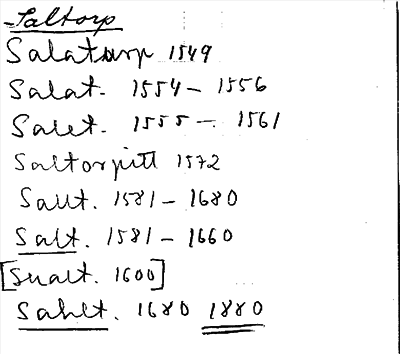 Saltorp
Salatarp 1549
Salat. 1554 - 1556
Salet. 1555 - 1561
Saltorpitt 1572
Sallt. 1581 - 1680
Salt. 1581 - 1660
[Snalt. 1600]
Sahlt. 1680 1880